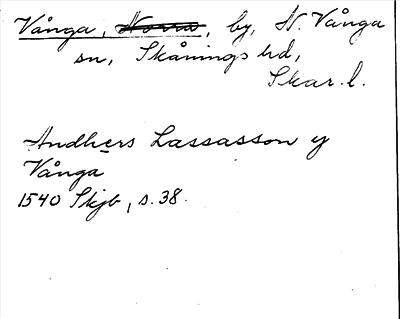 Vånga, Norra, by, N. Vånga
sn, Skånings hd,
Skar. l.
Andhers Lassasson y
Vånga
1540 Skjb, s. 38.